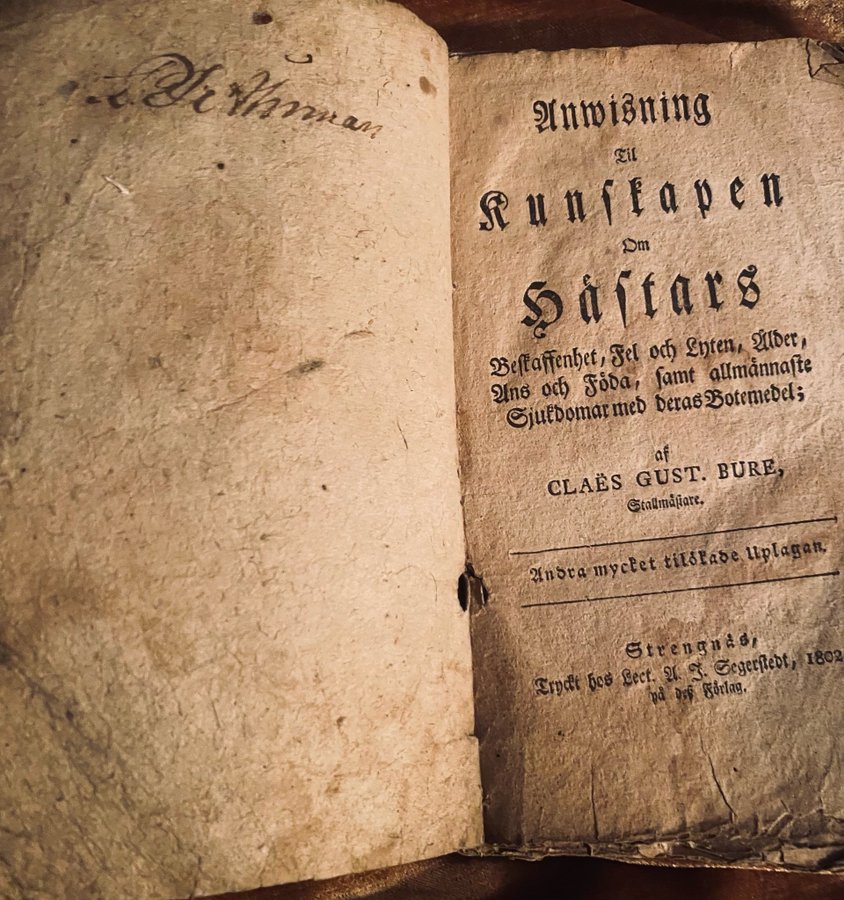 Anwisning
Til
Kunskapen
Om
Håstars
Beskaffenhet, Fel och Lyten, Ålder,
Ans och Föda, samt allmånnaste
Sjukdomar med deras Botemedel;
af
CLAËS GUST. BURE,
Stallmåstare.
Andra mycket tilökade Uplagan.
Strengnås,
Tryckt hos Lect. A. J. Segerstedt, 1802
på deß Förlag.